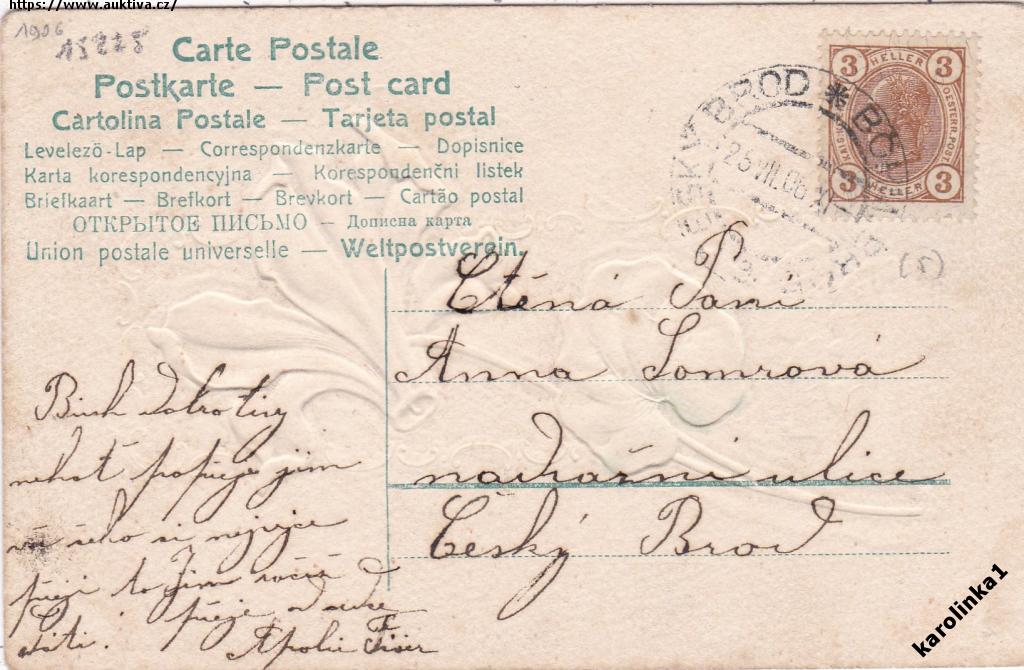 https://www.auktiva.cz/
1906
15228
Carte Postale
Postkarte — Post card
Cartolina Postale — Tarjeta postal
Levelező-Lap — Correspondenzkarte — Dopisnice
Karta korespondencyjna — Korespondenčni listek
Briefkaart — Brefkort — Brevkort — Cartão postal
ОТКРЫТОЕ ПИСЬМО — Дописна карта
Union postale universelle — Weltpostverein.
3 HELLER 3
3 HELLER 3
BROD * BÖ
(5)
Ctěná Paní
Anna Somrová
nadražní ulice
Český Brod
Buch dobrotivy
nehať popřeje jim
vše čeho si nejvíce
přejí to Jim
přeje od srdce
Apolie
karolinka1